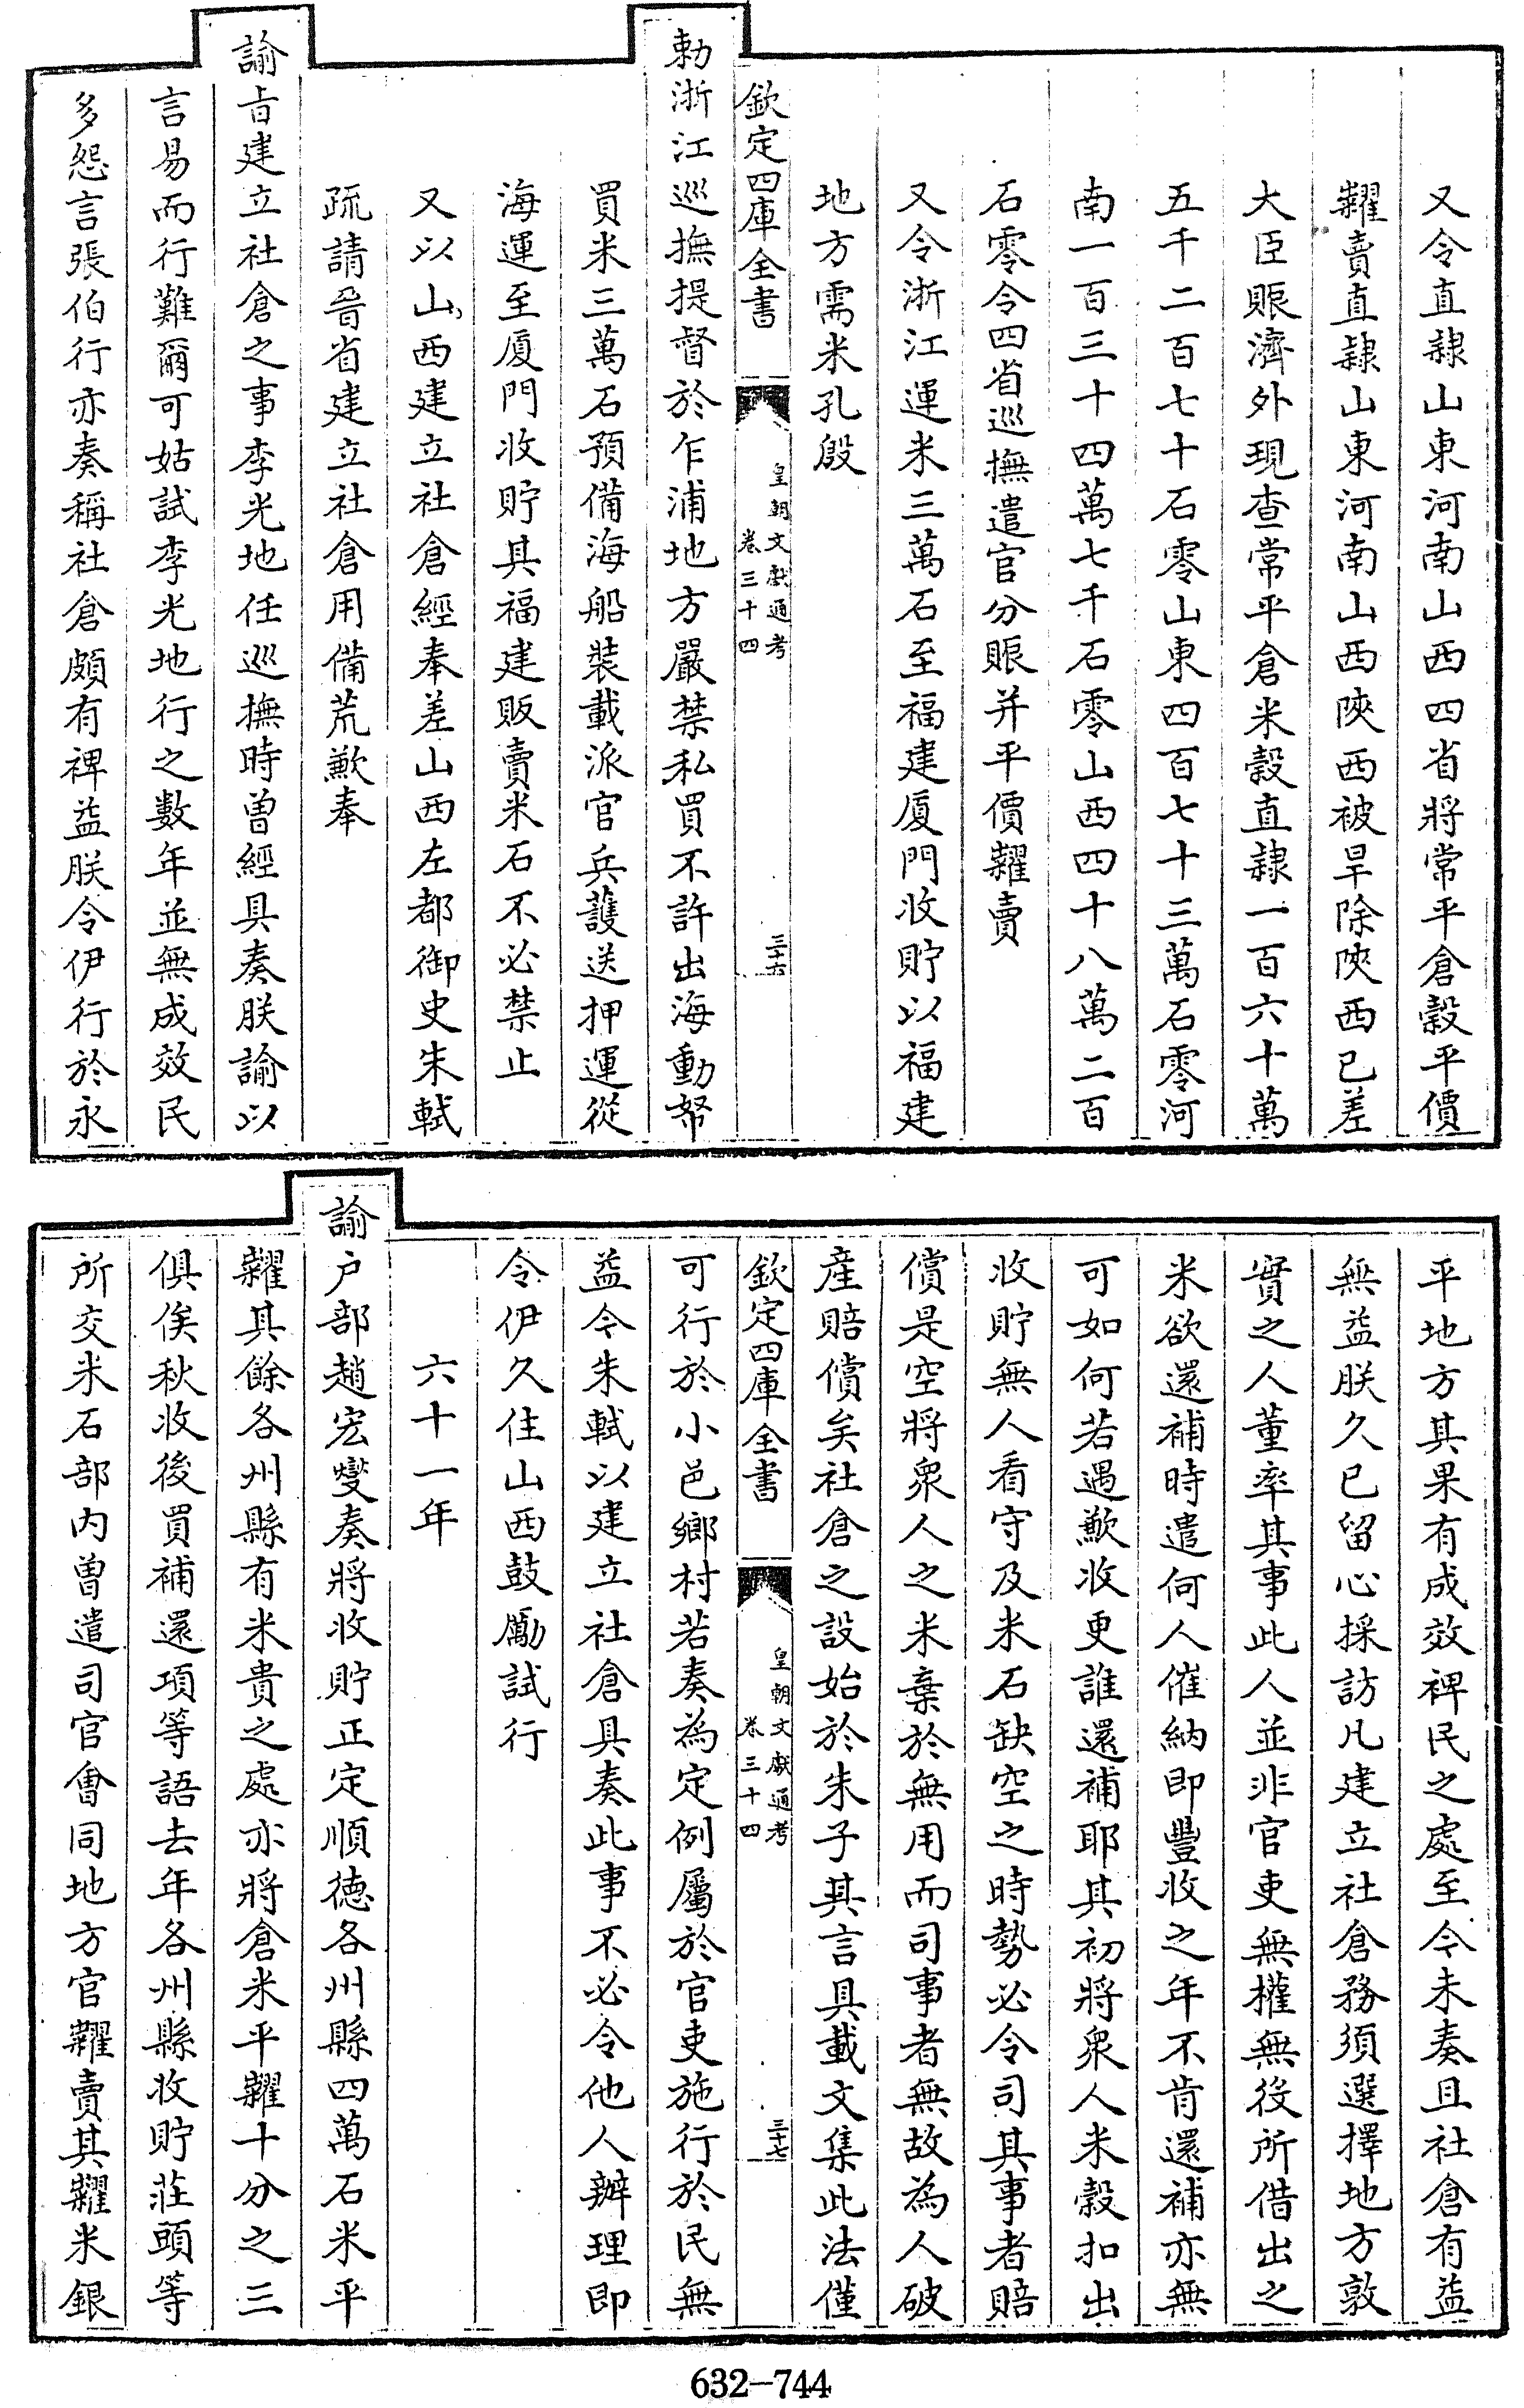 又令直隸山東河南山西四省將常平倉穀平價
糶賣直隸山東河南山西陜西被旱除陜西已差
大臣賑濟外現查常平倉米穀直隸一百六十萬
五千二百七十石零山東四百七十三萬石零河
南一百三十四萬七千石零山西四十八萬二百
石零令四省巡撫遣官分賑并平價糶賣
又令浙江運米三萬石至福建厦門收貯以福建
地方需米孔殷
欽定四庫全書
皇朝文獻通考
卷三十四
三十六
勅浙江巡撫提督於乍浦地方嚴禁私買不許出海動帑
買米三萬石預備海船裝載派官兵護送押運從
海運至厦門收貯其福建販賣米石不必禁止
又以山西建立社倉經奉差山西左都御史朱軾
疏請晉省建立社倉用備荒歉奉
諭旨建立社倉之事李光地任巡撫時曾經具奏朕諭以
言易而行難爾可姑試李光地行之數年並無成效民
多怨言張伯行亦奏稱社倉頗有裨益朕令伊行於永
平地方其果有成效裨民之處至今未奏且社倉有益
無益朕久已留心採訪凡建立社倉務須選擇地方敦
實之人董率其事此人並非官吏無權無役所借出之
米欲還補時遣何人催納即豐收之年不肯還補亦無
可如何若遇歉收更誰還補耶其初將衆人米穀扣出
收貯無人看守及米石缺空之時勢必令司其事者賠
償是空將衆人之米棄於無用而司事者無故為人破
産賠償矣社倉之設始於朱子其言具載文集此法僅
欽定四庫全書
皇朝文獻通考
卷三十四
三十七
可行於小邑鄉村若奏為定例屬於官吏施行於民無
益令朱軾以建立社倉具奏此事不必令他人辦理即
令伊久住山西鼓勵試行
六十一年
諭户部趙宏燮奏將收貯正定順德各州縣四萬石米平
糶其餘各州縣有米貴之處亦將倉米平糶十分之三
俱俟秋收後買補還項等語去年各州縣收貯莊頭等
所交米石部内曾遣司官會同地方官糶賣其糶米銀
632-744